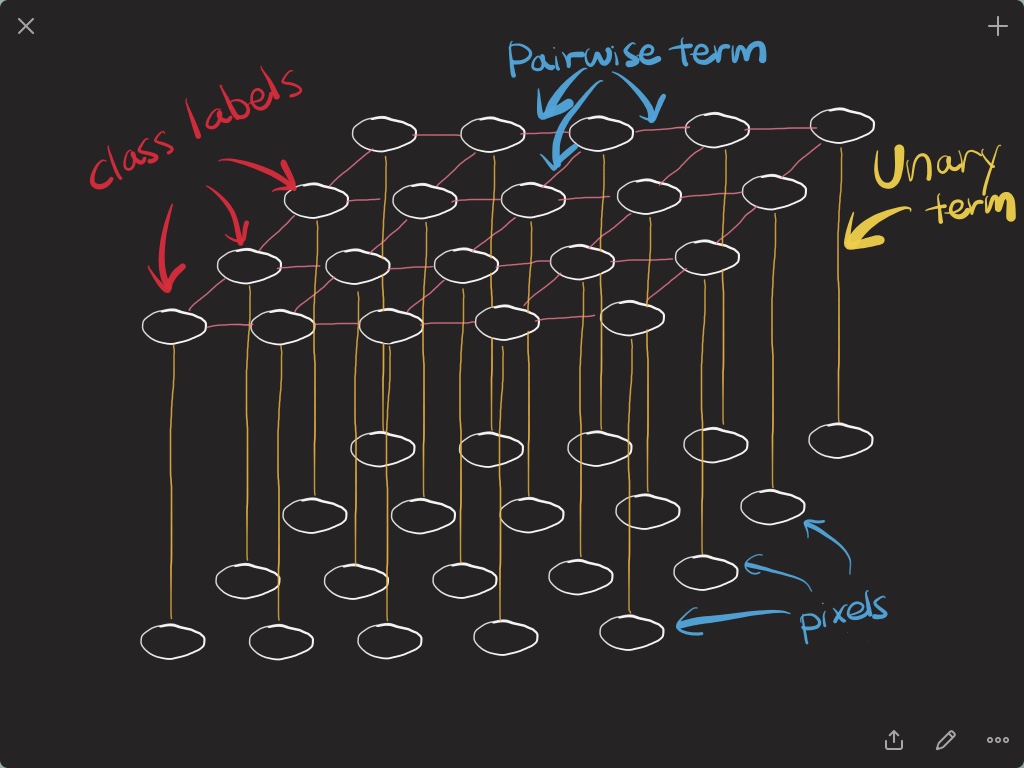 Pairwise term
class labels
Unary
term
pixels